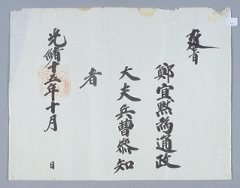 教旨
鄭宜黙爲通政
大夫兵曹參知
者
光緖十五年十月　日